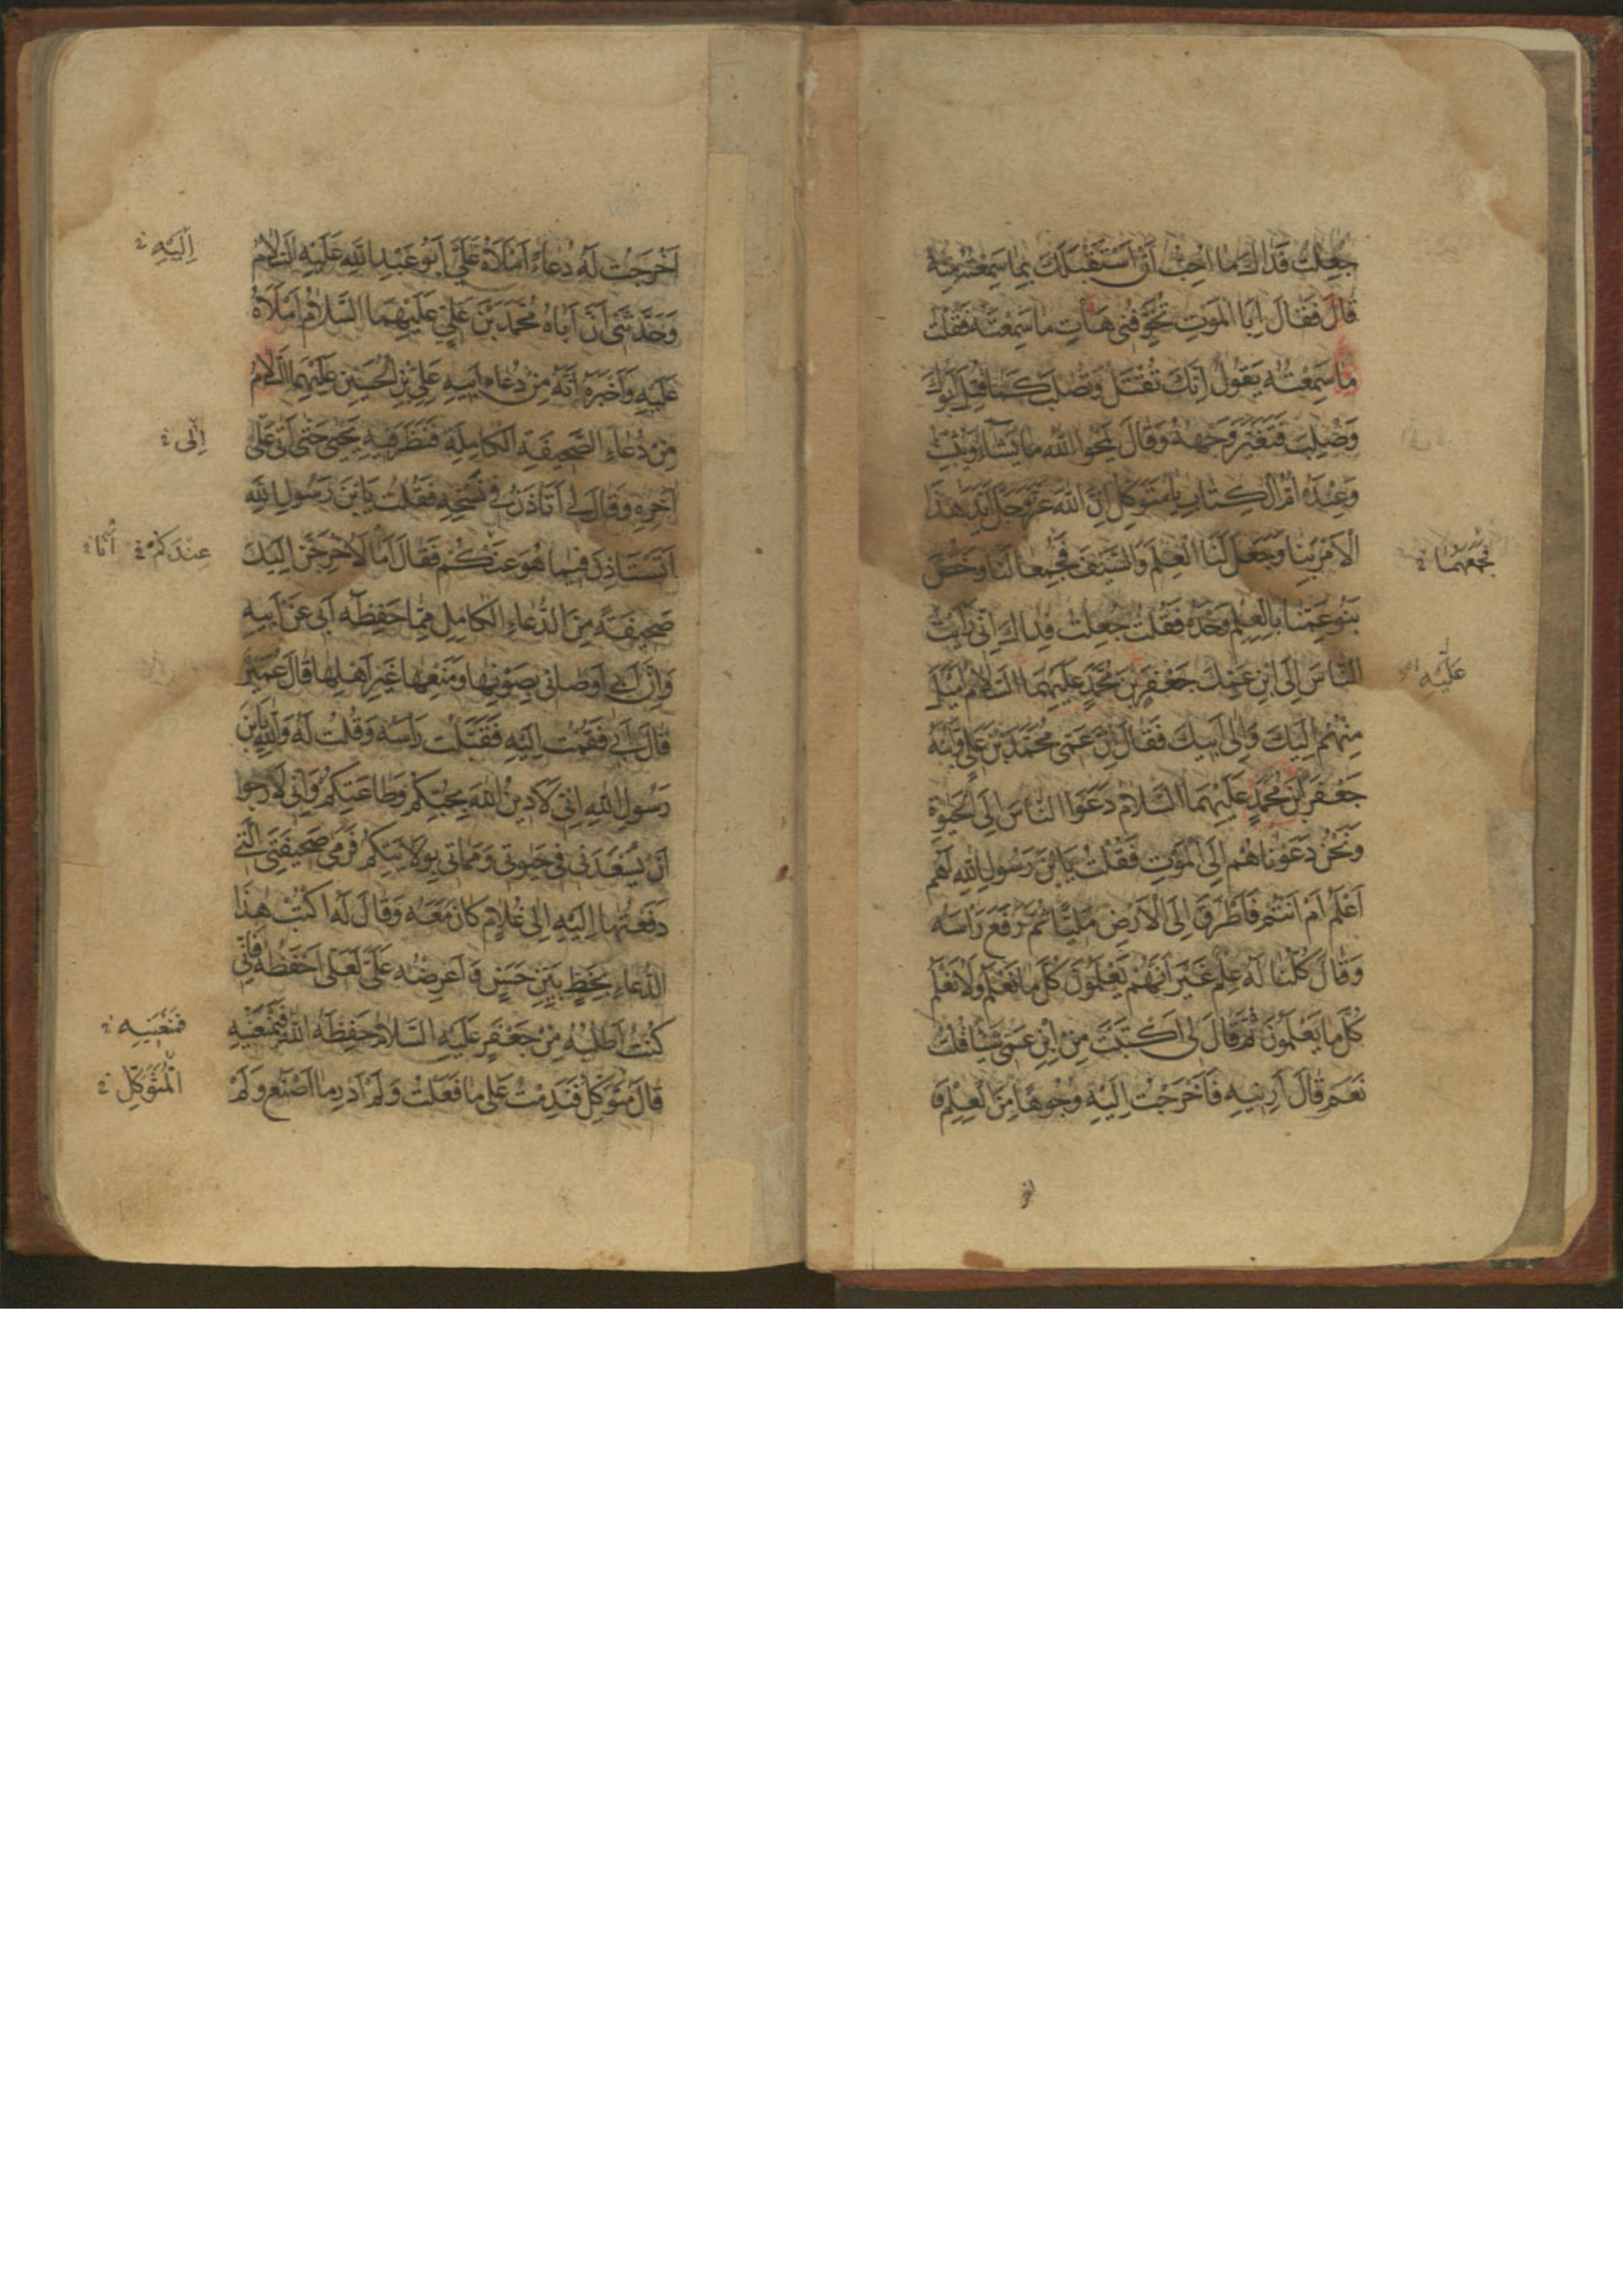 جُعِلْتُ فِدَاكَ مَا اُحِبُّ اَنْ اَسْتَقْبِلَكَ بِمَا سَمِعْتُهُ مِنْهُ
قَالَ فَقَالَ اَبِالْمَوْتِ تُخَوِّفُنِي هَاتِ مَا سَمِعْتَهُ فَقُلْتُ
مَا سَمِعْتُهُ يَقُولُ اِنَّكَ تُقْتَلُ وَتُصْلَبُ كَمَا قُتِلَ اَبُوكَ
وَصُلِبَ فَتَغَيَّرَ وَجْهُهُ وَقَالَ يَمْحُوا اللهُ مَا يَشَاءُ وَيُثْبِتُ
وَعِنْدَهُ اُمُّ الْكِتَابِ يَا مُتَوَكِّلُ اِنَّ اللهَ عَزَّ وَجَلَّ اَيَّدَ هَذَا
الْاَمْرَ بِنَا وَجَعَلَ لَنَا الْعِلْمَ وَالسَّيْفَ فَجُمِعَا لَنَا وَخُصَّ
فَجَمَعَهُمَا
بَنُو عَمِّنَا بِالْعِلْمِ وَحْدَهُ فَقُلْتُ جُعِلْتُ فِدَاكَ اِنِّي رَاَيْتُ
النَّاسَ اِلَى ابْنِ عَمِّكَ جَعْفَرِ بْنِ مُحَمَّدٍ عَلَيْهِمَا السَّلَامُ اَمْيَلَ
عَلَيْهِ
مِنْهُمْ اِلَيْكَ وَاِلَى اَبِيكَ فَقَالَ اِنَّ عَمِّي مُحَمَّدَ بْنَ عَلِيٍّ وَابْنَهُ
جَعْفَرَ بْنَ مُحَمَّدٍ عَلَيْهِمَا السَّلَامُ دَعَوَا النَّاسَ اِلَى الْحَيٰوةِ
وَنَحْنُ دَعَوْنَاهُمْ اِلَى الْمَوْتِ فَقُلْتُ يَا ابْنَ رَسُولِ اللهِ اَهُمْ
اَعْلَمُ اَمْ اَنْتُمْ فَاَطْرَقَ اِلَى الْاَرْضِ مَلِيًّا ثُمَّ رَفَعَ رَاْسَهُ
وَقَالَ كُلُّنَا لَهُ عِلْمٌ غَيْرَ اَنَّهُمْ يَعْلَمُونَ كُلَّ مَا نَعْلَمُ وَلَا نَعْلَمُ
كُلَّ مَا يَعْلَمُونَ ثُمَّ قَالَ لِي اَكَتَبْتَ مِنِ ابْنِ عَمِّي شَيْئًا قُلْتُ
نَعَمْ قَالَ اَرِنِيهِ فَاَخْرَجْتُ اِلَيْهِ وُجُوهًا مِنَ الْعِلْمِ وَ
اَخْرَجْتُ لَهُ دُعَاءً اَمْلَاهُ عَلَيَّ اَبُو عَبْدِ اللهِ عَلَيْهِ السَّلَامُ
اِلَيْهِ
وَحَدَّثَنِي اَنَّ اَبَاهُ مُحَمَّدَ بْنَ عَلِيٍّ عَلَيْهِمَا السَّلَامُ اَمْلَاهُ
عَلَيْهِ وَاَخْبَرَهُ اَنَّهُ مِنْ دُعَاءِ اَبِيهِ عَلِيِّ بْنِ الْحُسَيْنِ عَلَيْهِمَا السَّلَامُ
مِنْ دُعَاءِ الصَّحِيفَةِ الْكَامِلَةِ فَنَظَرَ فِيهِ يَحْيَى حَتَّى اَتَى عَلَى
اِلَى
آخِرِهِ وَقَالَ لِي اَتَاْذَنُ فِي نَسْخِهِ فَقُلْتُ يَا بْنَ رَسُولِ اللهِ
اَتَسْتَاْذِنُ فِيمَا هُوَ عَنْكُمْ فَقَالَ اَمَا لَاُخْرِجَنَّ اِلَيْكَ
عِنْدَكُمْ اَمَا
صَحِيفَةً مِنَ الدُّعَاءِ الْكَامِلِ مِمَّا حَفِظَهُ اَبِي عَنْ اَبِيهِ
وَاِنَّ اَبِي اَوْصَانِي بِصَوْنِهَا وَمَنْعِهَا غَيْرَ اَهْلِهَا قَالَ عُمَيْرٌ
قَالَ اَبِي فَقُمْتُ اِلَيْهِ فَقَبَّلْتُ رَاْسَهُ وَقُلْتُ لَهُ وَاللهِ يَا بْنَ
رَسُولِ اللهِ اِنِّي لَاَدِينُ اللهَ بِحُبِّكُمْ وَطَاعَتِكُمْ وَاِنِّي لَاَرْجُوا
اَنْ يُسْعِدَنِي فِي حَيٰوتِي وَمَمَاتِي بِوِلَايَتِكُمْ فَرَمَى صَحِيفَتِيَ الَّتِي
دَفَعْتُهَا اِلَيْهِ اِلَى غُلَامٍ كَانَ مَعَهُ وَقَالَ لَهُ اكْتُبْ هٰذَا
الدُّعَاءَ بِخَطٍّ بَيِّنٍ حَسَنٍ وَاَعْرِضْهُ عَلَيَّ لَعَلِّي اَحْفَظُهُ فَاِنِّي
كُنْتُ اَطْلُبُهُ مِنْ جَعْفَرٍ عَلَيْهِ السَّلَامُ حَفِظَهُ اللهُ فَيَمْنَعُنِيهِ
فَمَنَعَنِيهِ
قَالَ مُتَوَكِّلٌ فَنَدِمْتُ عَلَى مَا فَعَلْتُ وَلَمْ اَدْرِ مَا اَصْنَعُ وَلَمْ
الْمُتَوَكِّلُ